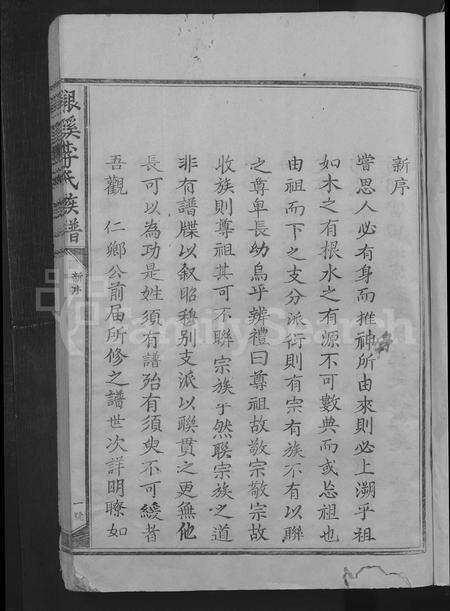 新序
嘗思人必有身而推神所由來則必上溯乎祖
如木之有根水之有源不可數典而或忘祖也
由祖而下之支分派衍則有宗有族不有以聯
之尊卑長幼烏乎辨禮曰尊祖故敬宗敬宗故
收族則尊祖其可不聯宗族乎然聯宗族之道
非有譜牒以叙昭穆別支派以聯貫之更無他
長可以為功是姓須有譜殆有須臾不可緩者
吾觀 仁鄉公前届所修之譜世次詳明瞭如
銀溪李氏族譜
新序
一
FamilySearch